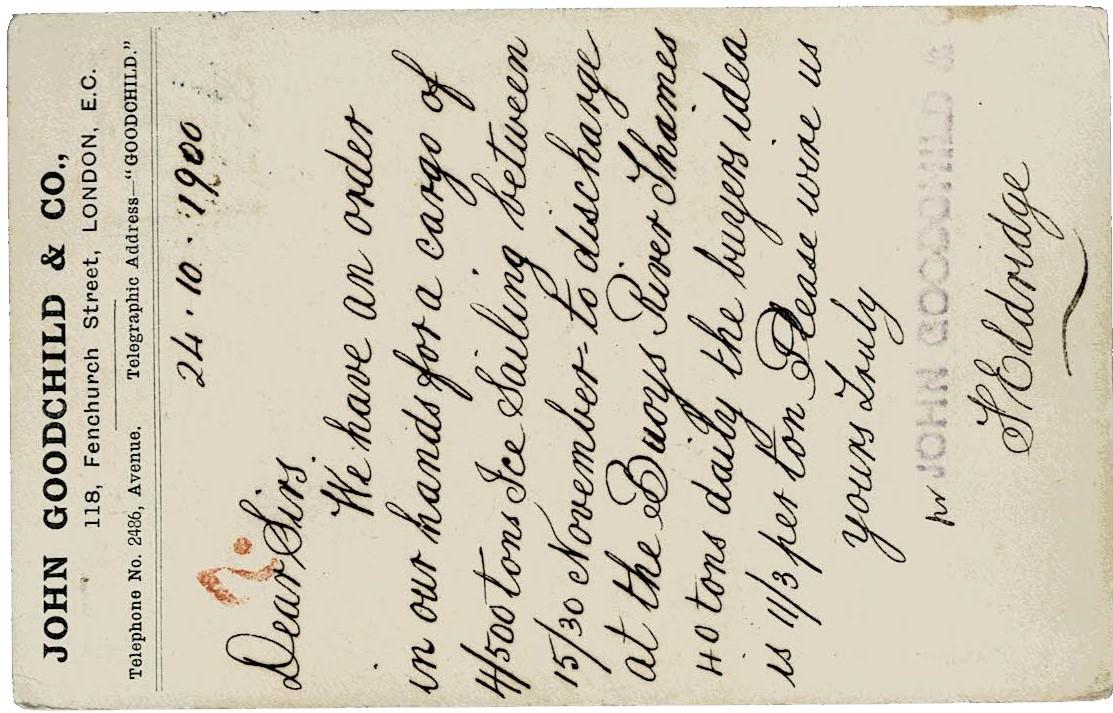 JOHN GOODCHILD & CO.,
118, Fenchurch Street, LONDON, E.C.
Telephone No. 2486, Avenue. Telegraphic Address—"GOODCHILD."
24.10.1900
Dear Sirs
We have an order
in our hands for a cargo of
4/500 tons Ice Sailing between
15/30 November - to discharge
at the Buoys River Thames
40 tons daily the buyers idea
is 11/3 per ton Please wire us
yours Truly
pr JOHN GOODCHILD &
Eldridge